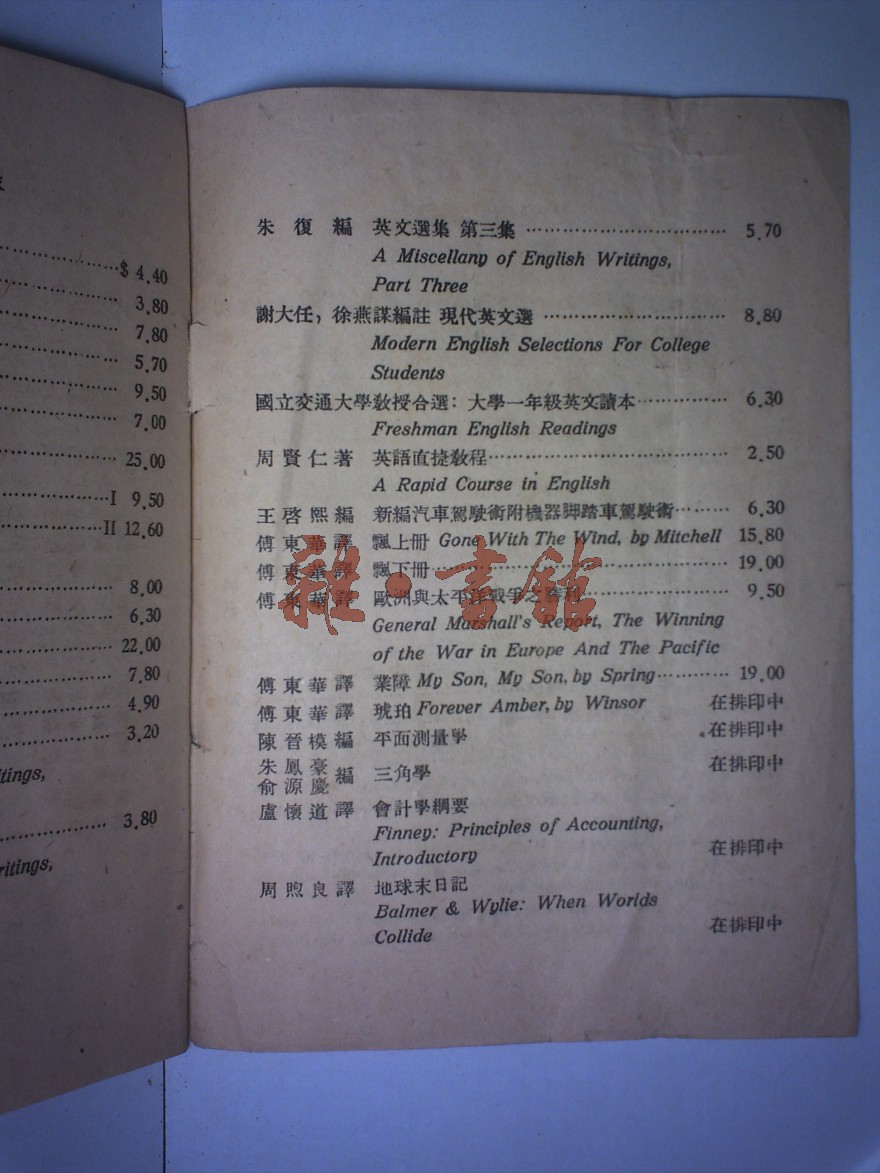 $ 4.40
3.80
7.80
5.70
9.50
7.00
25.00
I 9.50
II 12.60
8.00
6.30
22.00
7.80
4.90
3.20
3.80
朱復編 英文選集 第三集 5.70
A Miscellany of English Writings,
Part Three
謝大任, 徐燕謀編註 現代英文選 8.80
Modern English Selections For College
Students
國立交通大學敎授合選: 大學一年級英文讀本 6.30
Freshman English Readings
周賢仁著 英語直捷敎程 2.50
A Rapid Course in English
王啓熙編 新編汽車駕駛術附機器脚踏車駕駛術 6.30
傅東華譯 飄上冊 Gone With The Wind, by Mitchell 15.80
傅東華譯 飄下冊 19.00
傅東華譯 歐洲與太平洋戰爭之勝利 9.50
General Marshall's Report, The Winning
of the War in Europe And The Pacific
傅東華譯 業障 My Son, My Son, by Spring 19.00
傅東華譯 琥珀 Forever Amber, by Winsor 在排印中
陳晉模編 平面測量學 在排印中
朱鳳豪
俞源慶 編 三角學 在排印中
盧懷道譯 會計學綱要
Finney: Principles of Accounting,
Introductory 在排印中
周煦良譯 地球末日記
Balmer & Wylie: When Worlds
Collide 在排印中
雜·書館